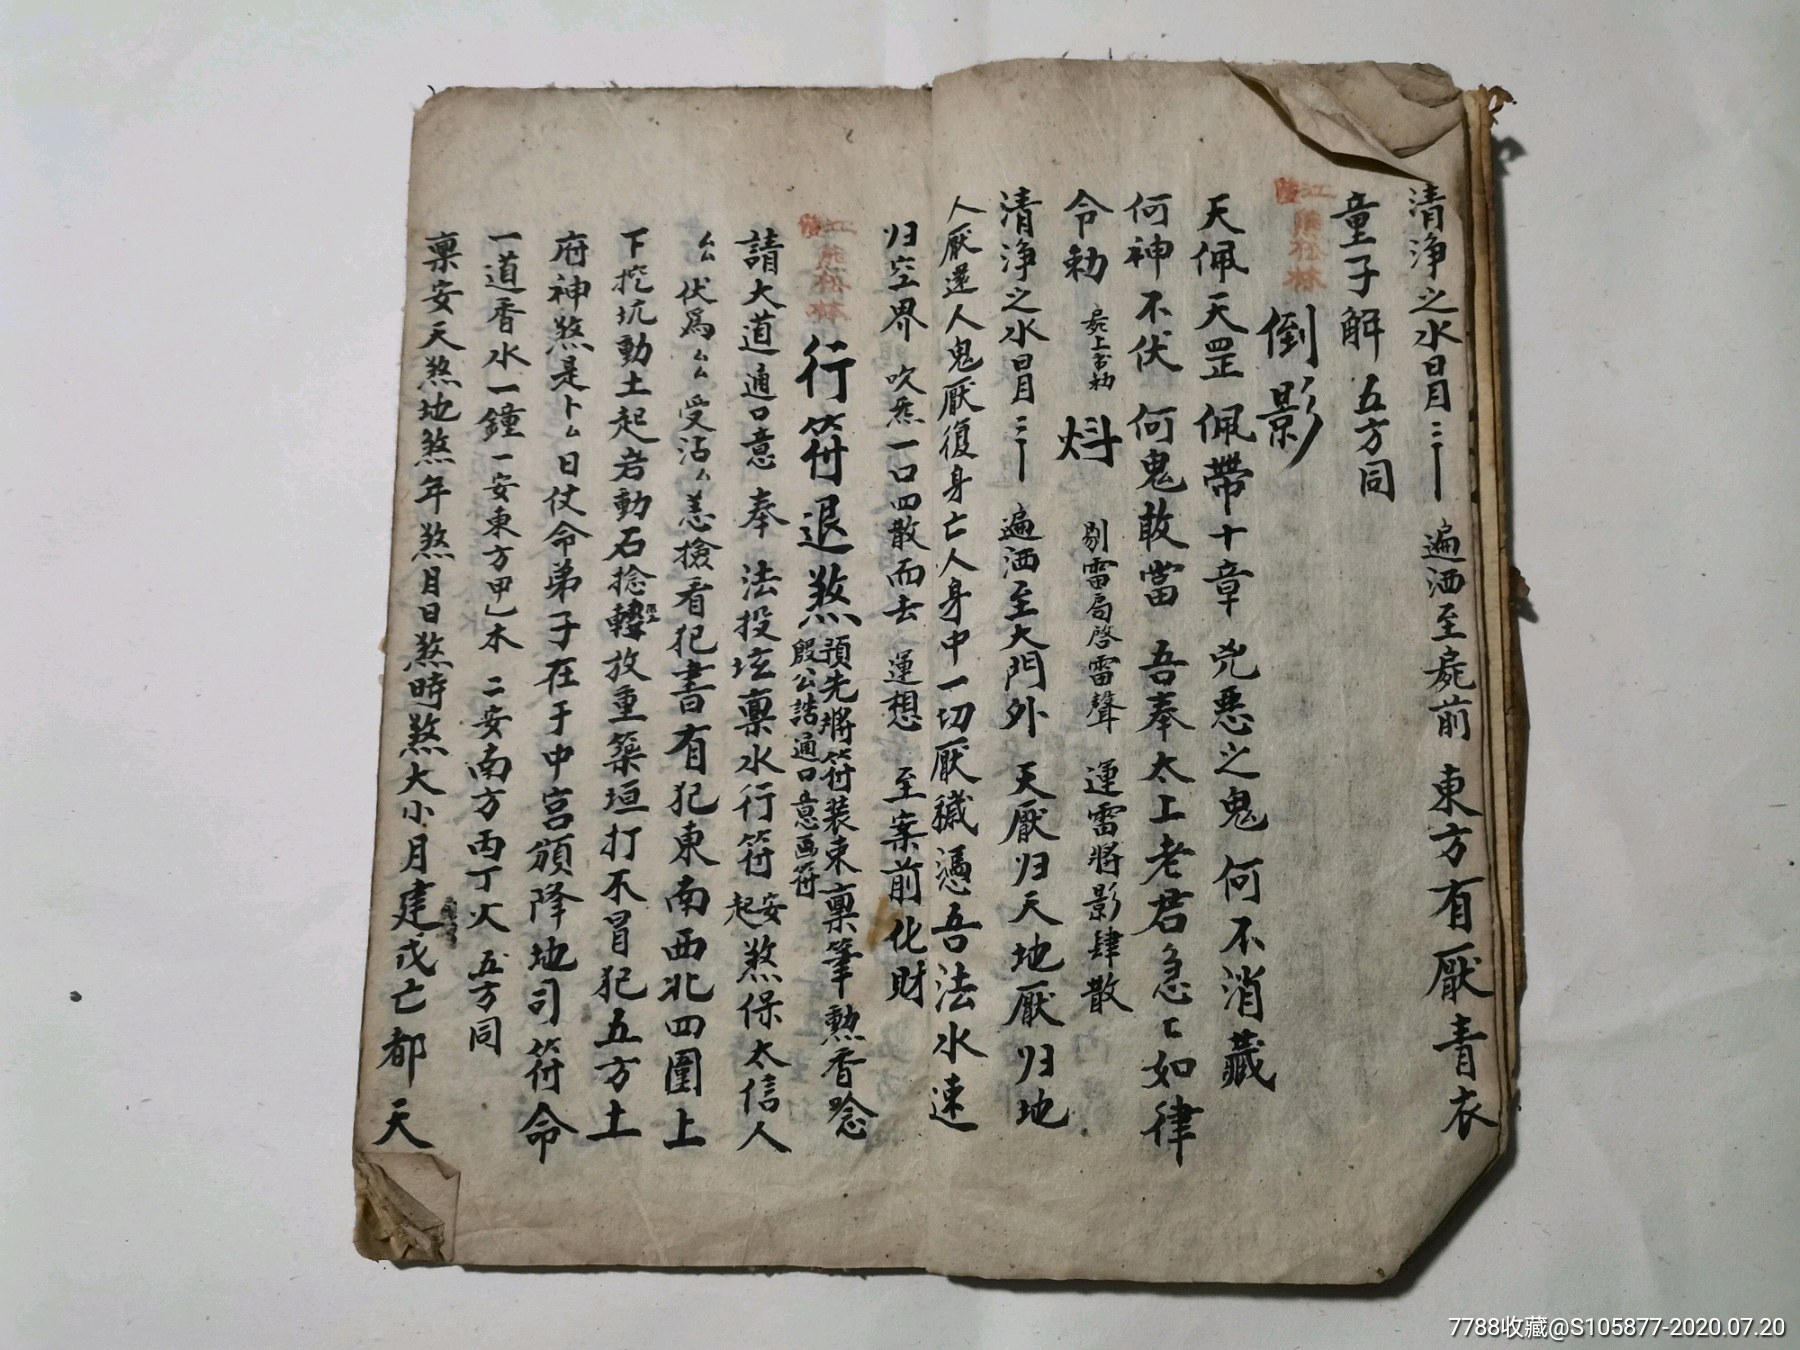 清净之水日月三 遍洒至屍前 東方有厭青衣
童子解 五方同
江陵
熊松林
倒影
天佩天罡 佩帶十章 兇惡之鬼 何不消藏
何神不伏 何鬼敢當 吾奉太上老君急匕如律
令勅 屍上書勅 剔雷局啓雷聲 運雷將影肆散
清净之水日月三 遍洒至大門外 天厭归天地厭归地
人厭還人鬼厭復身亡人身中一切厭穢憑吾法水速
归空界 吹炁一口四散而去 運想 至案前化財
江陵
熊松林
行符退煞 預先將符裝束禀筆勲香唸
殷公誥通口意画符
請大道通口意 奉 法投坛禀水行符安起煞保太信人
厶厶伏爲厶厶受沾厶恙撿看犯書有犯東南西北四圍上
下挖坑動土起岩動石捻轉放重築垣打不冒犯五方土
府神煞是卜厶日仗命弟子在于中宫頒降地司符命
一道香水一鐘一安東方甲乙木 二安南方丙丁火 五方同
禀安天煞地煞年煞月日煞時煞大小月建戊亡都天
7788收藏@S105877-2020.07.20